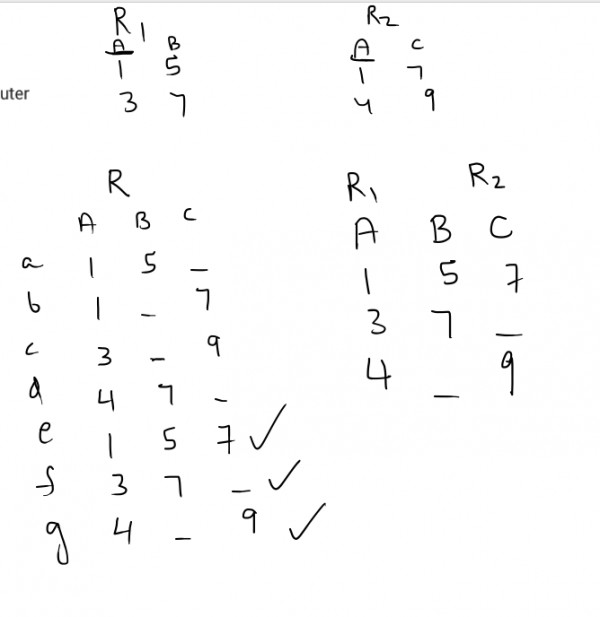 R1 R2
A B A C
1 5 1 7
uter
3 7 4 9
R R1 R2
A B C A B C
a 1 5 _ 1 5 7
b 1 _ 7
3 7 _
c 3 _ 9
4 _ 9
d 4 7 _
e 1 5 7 ✓
f 3 7 _ ✓
g 4 _ 9 ✓